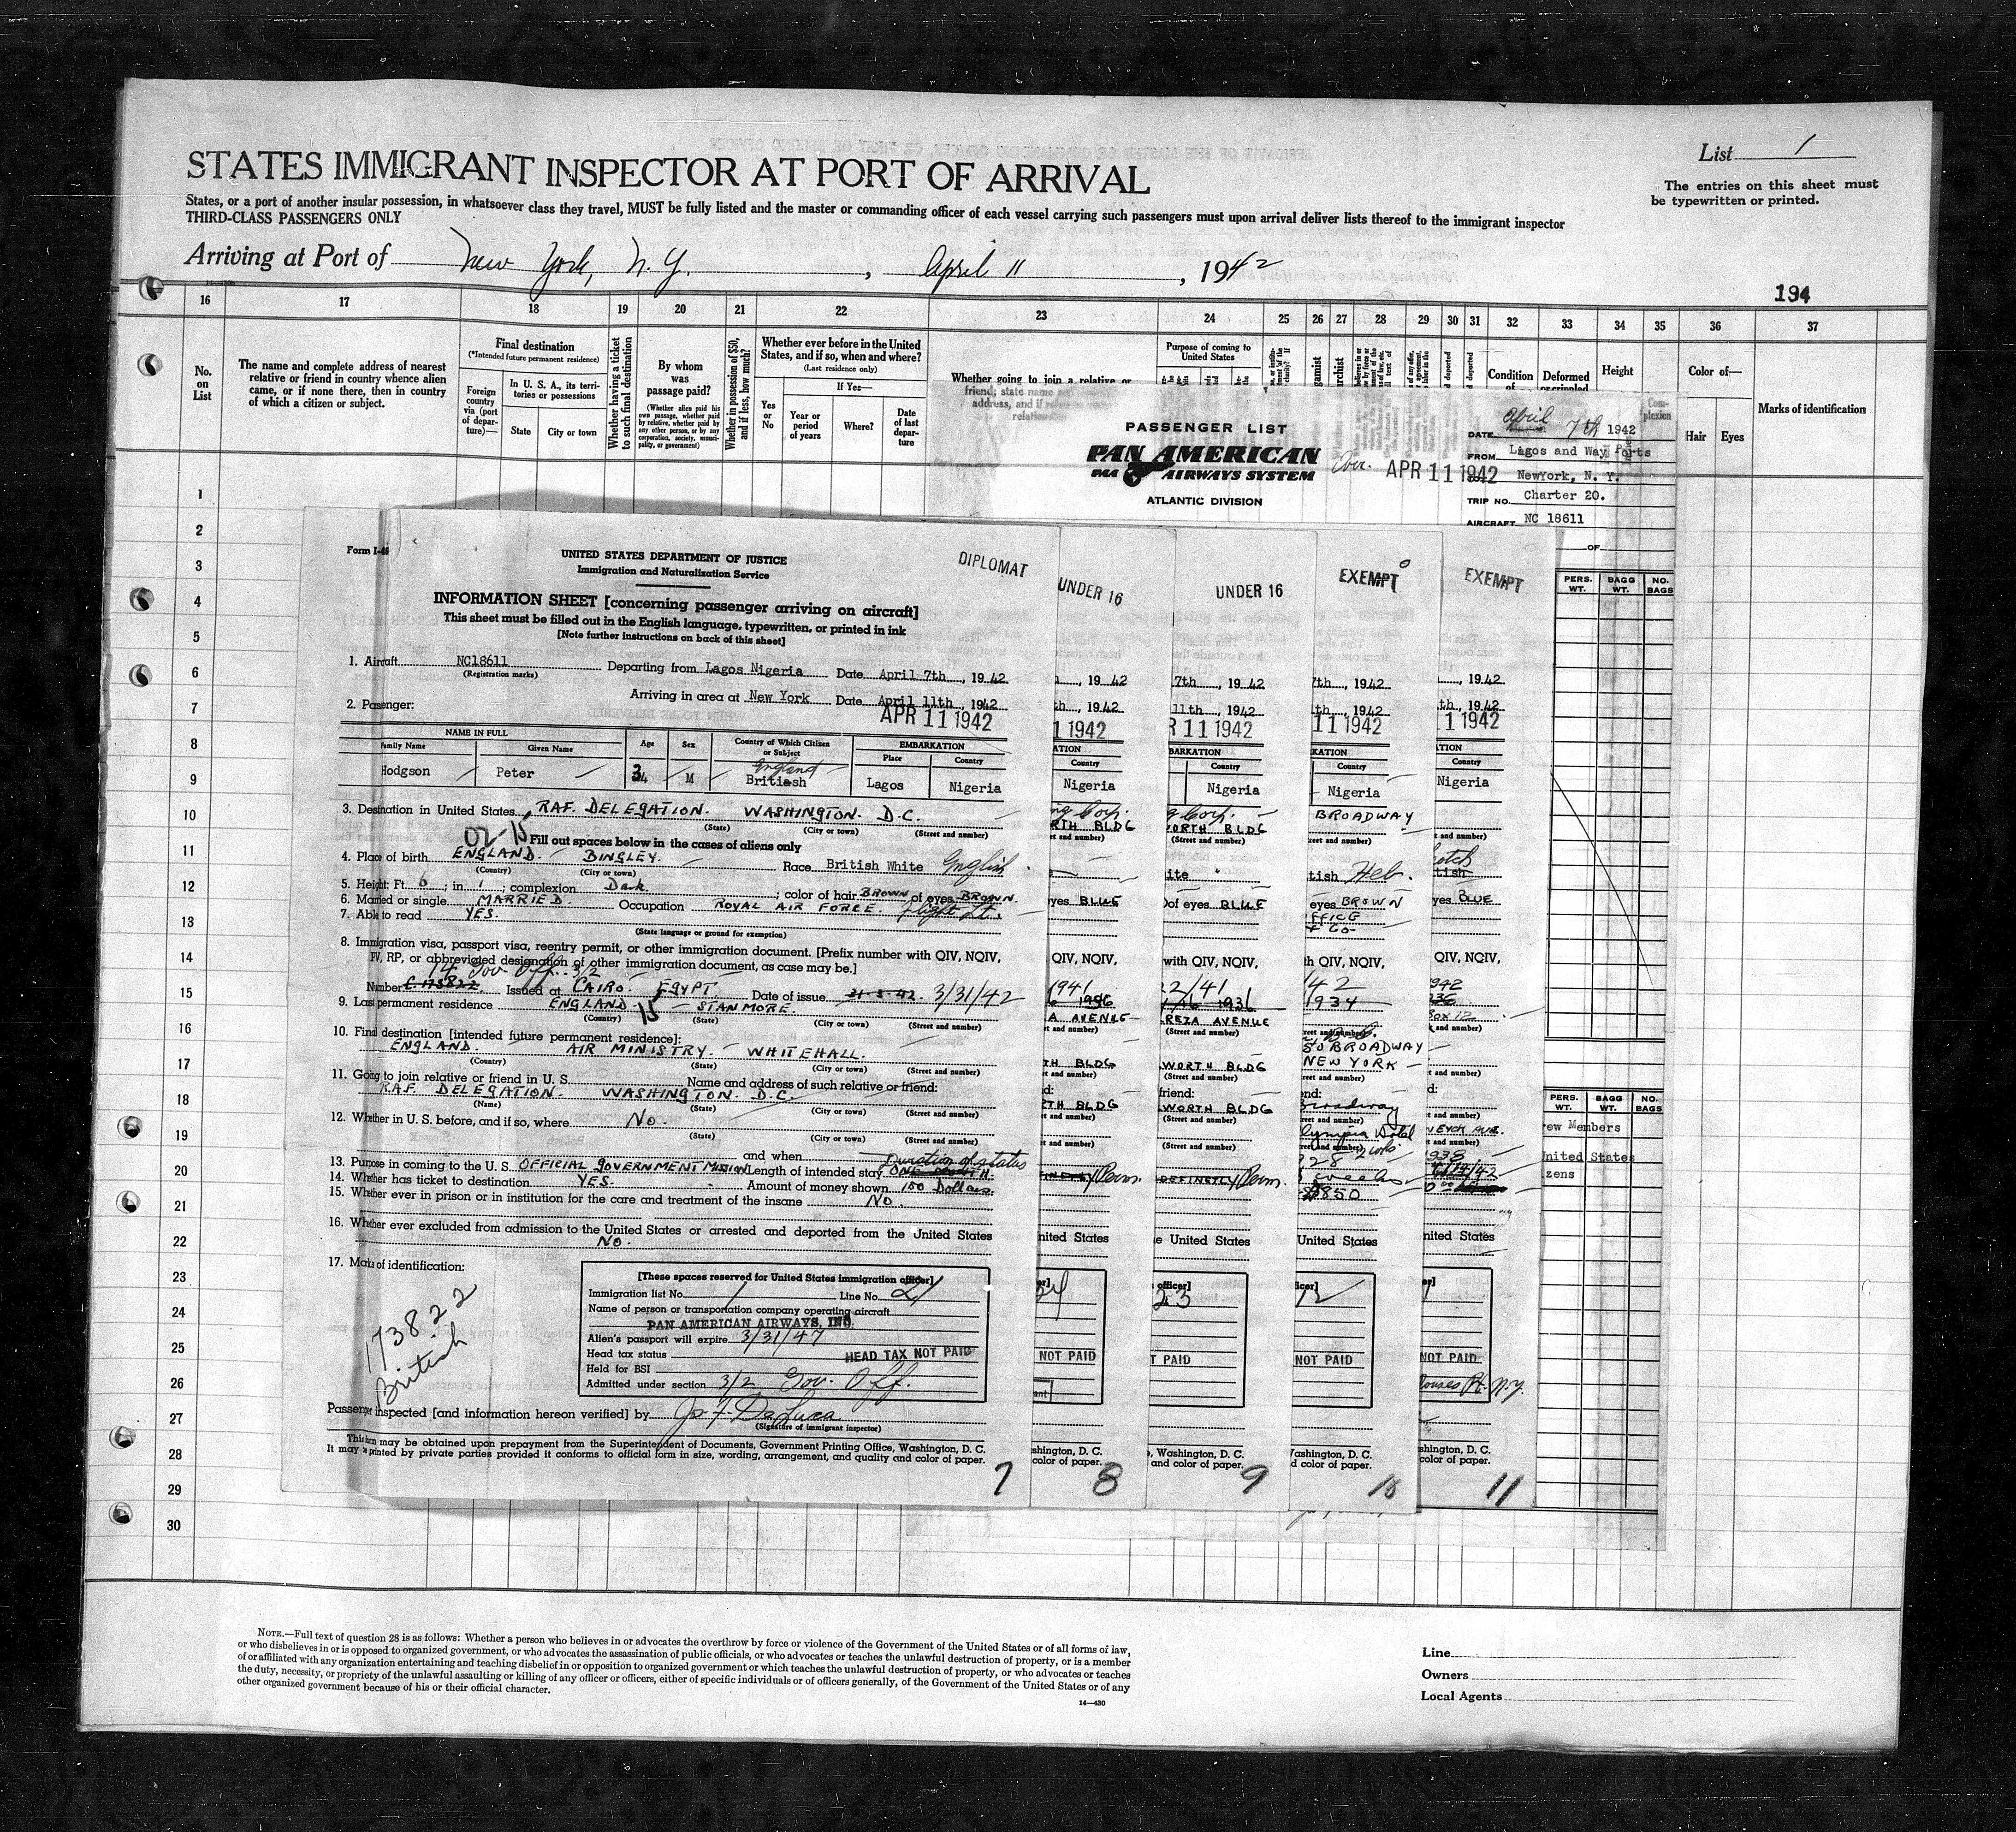 STATES IMMIGRANT INSPECTOR AT PORT OF ARRIVAL
List 1
The entries on this sheet must
be typewritten or printed.
States, or a port of another insular possession, in whatsoever class they travel, MUST be fully listed and the master or commanding officer of each vessel carrying such passengers must upon arrival deliver lists thereof to the immigrant inspector
THIRD-CLASS PASSENGERS ONLY
Arriving at Port of New York, N.Y., April 11, 1942
194
16 17 18 19 20 21 22 23 24 25 26 27 28 29 30 31 32 33 34 35 36 37
No. on List
The name and complete address of nearest
relative or friend in country whence alien
came, or if none there, then in country
of which a citizen or subject.
Final destination
(*Intended future permanent residence)
Foreign country via (port of departure)—
In U. S. A., its territories or possessions
State
City or town
Whether having a ticket to such final destination
By whom was passage paid?
(Whether alien paid his own passage, whether paid by relative, whether paid by any other person, or by any corporation, society, municipality, or government)
Whether in possession of $50, and if less, how much?
Whether ever before in the United
States, and if so, when and where?
(Last residence only)
If Yes—
Yes or No
Year or period of years
Where?
Date of last departure
Whether going to join a relative or
friend; state name
address, and if
Purpose of coming to United States
Condition of
Deformed
Height
Complexion
Color of—
Hair
Eyes
Marks of identification
PASSENGER LIST
PAN AMERICAN
PAA AIRWAYS SYSTEM
ATLANTIC DIVISION
Arr. APR 11 1942
DATE April 7th 1942
FROM Lagos and Way Ports
NewYork, N. Y.
TRIP NO. Charter 20.
AIRCRAFT NC 18611
OF
PERS. WT. BAGG WT. NO. BAGS
1
2
3
4
5
6
7
8
9
10
11
12
13
14
15
16
17
18
19
20
21
22
23
24
25
26
27
28
29
30
Form I-46
UNITED STATES DEPARTMENT OF JUSTICE
Immigration and Naturalization Service
DIPLOMAT
INFORMATION SHEET [concerning passenger arriving on aircraft]
This sheet must be filled out in the English language, typewritten, or printed in ink
[Note further instructions on back of this sheet]
1. Aircraft NC18611 Departing from Lagos Nigeria Date April 7th, 1942
(Registration marks)
Arriving in area at New York Date April 11th, 1942
2. Passenger:
APR 11 1942
NAME IN FULL
Family Name Given Name Age Sex Country of Which Citizen or Subject EMBARKATION Place Country
England
Hodgson Peter 34 M British Lagos Nigeria
3. Destination in United States RAF. DELEGATION. WASHINGTON. D.C.
(State) (City or town) (Street and number)
02-15
Fill out spaces below in the cases of aliens only
4. Place of birth ENGLAND. BINGLEY. Race British White English
(Country) (City or town)
5. Height: Ft. 6; in. 1; complexion Dark; color of hair BROWN of eyes BROWN.
6. Married or single MARRIED. Occupation ROYAL AIR FORCE. flight Lt.
7. Able to read YES.
(State language or ground for exemption)
8. Immigration visa, passport visa, reentry permit, or other immigration document. [Prefix number with QIV, NQIV,
PV, RP, or abbreviated designation of other immigration document, as case may be.]
14 Gov Off. 3/2
Number Issued at CAIRO. EGYPT Date of issue 21-3-42. 3/31/42
9. Last permanent residence ENGLAND 15 STANMORE.
(Country) (State) (City or town) (Street and number)
10. Final destination [intended future permanent residence]:
ENGLAND. AIR MINISTRY. WHITEHALL.
(Country) (State) (City or town) (Street and number)
11. Going to join relative or friend in U. S. Name and address of such relative or friend:
RAF. DELEGATION. WASHINGTON. D.C.
(Name) (State) (City or town) (Street and number)
12. Whether in U. S. before, and if so, where No.
(State) (City or town) (Street and number)
and when
Duration of status
13. Purpose in coming to the U. S. OFFICIAL GOVERNMENT MISSION Length of intended stay ONE MONTH.
14. Whether has ticket to destination YES. Amount of money shown 150 Dollars.
15. Whether ever in prison or in institution for the care and treatment of the insane NO.
16. Whether ever excluded from admission to the United States or arrested and deported from the United States
NO.
17. Marks of identification:
173822
British
[These spaces reserved for United States immigration officer]
Immigration list No. 1 Line No. 21
Name of person or transportation company operating aircraft
PAN AMERICAN AIRWAYS, INC.
Alien's passport will expire 3/31/47
Head tax status HEAD TAX NOT PAID
Held for BSI
Admitted under section 3/2 Gov. Off.
Passenger inspected [and information hereon verified] by Jos. F. DeLuca
(Signature of immigrant inspector)
This form may be obtained upon prepayment from the Superintendent of Documents, Government Printing Office, Washington, D. C.
It may be printed by private parties provided it conforms to official form in size, wording, arrangement, and quality and color of paper.
7
UNDER 16
, 19 42
th, 1942
1 1942
Nigeria
RTH BLDG
yes BLUE
QIV, NQIV,
1941
A AVENUE
TH BLDG
TH BLDG
Perm.
nited States
24
NOT PAID
shington, D. C.
color of paper.
8
UNDER 16
7th, 1942
11th, 1942
R 11 1942
BARKATION
Country
Nigeria
g Corp.
WORTH BLDG
ite
of eyes BLUE
with QIV, NQIV,
2/41
1931
REZA AVENUE
WORTH BLDG
friend:
WORTH BLDG
DEFINITLY Perm.
e United States
officer]
23
T PAID
, Washington, D. C.
and color of paper.
9
EXEMPT
7th, 1942
th, 1942
11 1942
KATION
Country
Nigeria
BROADWAY
tish Heb.
eyes BROWN
FFICE
& Co-
th QIV, NQIV,
/42
1934
50 BROADWAY
NEW YORK
Broadway
lympia Hotel
2 wks
weeks
$850
United States
12
NOT PAID
Washington, D. C.
d color of paper.
10
EXEMPT
, 1942
th, 1942
1 1942
TION
Country
Nigeria
Scotch
tish
yes BLUE
QIV, NQIV,
942
Box 12
1938
nited States
NOT PAID
Rouses Pt. N.Y.
shington, D. C.
color of paper.
11
PERS. WT. BAGG WT. NO. BAGS
rew Members
United States
izens
NOTE.—Full text of question 28 is as follows: Whether a person who believes in or advocates the overthrow by force or violence of the Government of the United States or of all forms of law,
or who disbelieves in or is opposed to organized government, or who advocates the assassination of public officials, or who advocates or teaches the unlawful destruction of property, or is a member
of or affiliated with any organization entertaining and teaching disbelief in or opposition to organized government or which teaches the unlawful destruction of property, or who advocates or teaches
the duty, necessity, or propriety of the unlawful assaulting or killing of any officer or officers, either of specific individuals or of officers generally, of the Government of the United States or of any
other organized government because of his or their official character.
14—430
Line
Owners
Local Agents